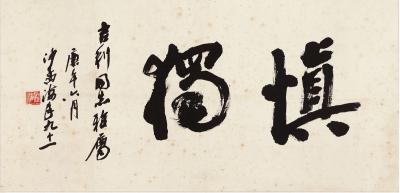 慎獨
吉利同志雅屬
庚午六月
沙孟海年九十一